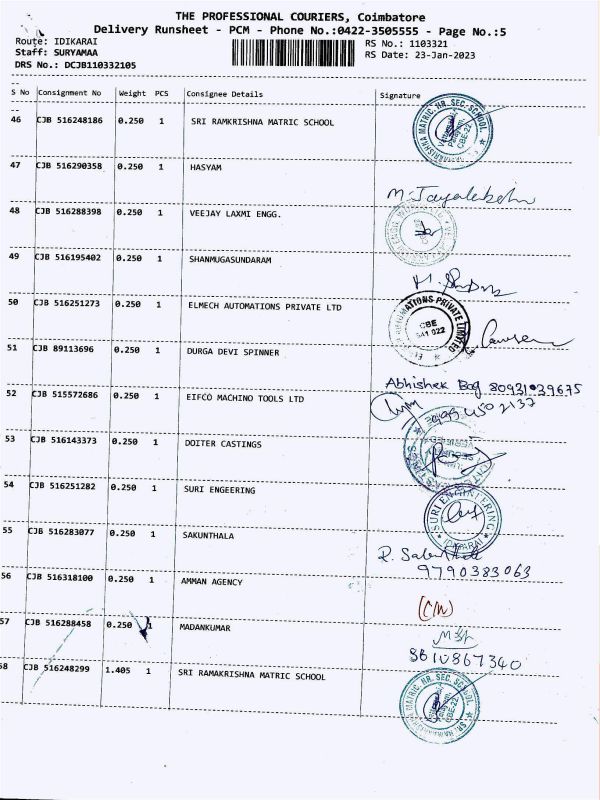 THE PROFESSIONAL COURIERS, Coimbatore
Delivery Runsheet - PCM - Phone No.:0422-3505555 - Page No.:5
Route: IDIKARAI
RS No.: 1103321
Staff: SURYAMAA
RS Date: 23-Jan-2023
DRS No.: DCJB110332105
S No Consignment No Weight PCS Consignee Details Signature
46 CJB 516248186 0.250 1 SRI RAMKRISHNA MATRIC SCHOOL
47 CJB 516290358 0.250 1 HASYAM
48 CJB 516288398 0.250 1 VEEJAY LAXMI ENGG.
49 CJB 516195402 0.250 1 SHANMUGASUNDARAM
50 CJB 516251273 0.250 1 ELMECH AUTOMATIONS PRIVATE LTD
CBE
641 022
51 CJB 89113696 0.250 1 DURGA DEVI SPINNER
Abhishek Bag 80931 39675
52 CJB 515572686 0.250 1 EIFCO MACHINO TOOLS LTD
53 CJB 516143373 0.250 1 DOITER CASTINGS
54 CJB 516251282 0.250 1 SURI ENGEERING
SURI ENGINEERING
IDIKARAI
55 CJB 516283077 0.250 1 SAKUNTHALA
9790383063
56 CJB 516318100 0.250 1 AMMAN AGENCY
57 CJB 516288458 0.250 1 MADANKUMAR
58 CJB 516248299 1.405 1 SRI RAMAKRISHNA MATRIC SCHOOL